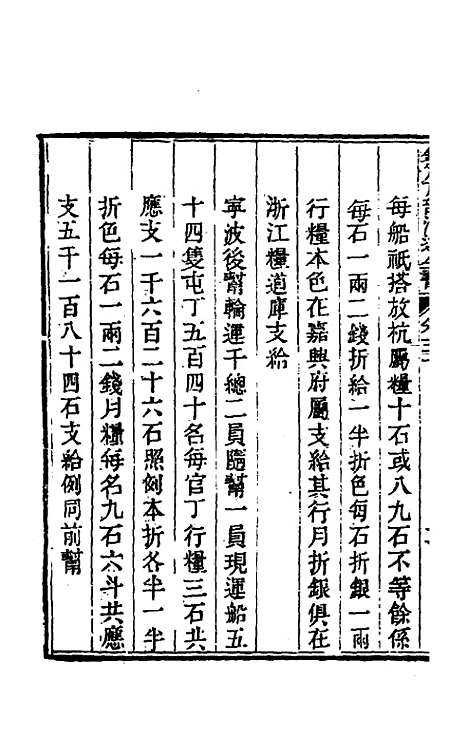 每船祇搭放杭屬糧十石或八九石不等餘係
每石一兩二錢折給一半折色每石折銀一兩
行糧本色在嘉興府屬支給其行月折銀俱在
浙江糧道庫支給
寧波後幫輪運千總二員隨幫一員現運船五
十四隻屯丁五百四十名每官丁行糧三石共
應支一千六百二十六石照例本折各半一半
折色每石一兩二錢月糧每名九石六斗共應
支五千一百八十四石支給例同前幫